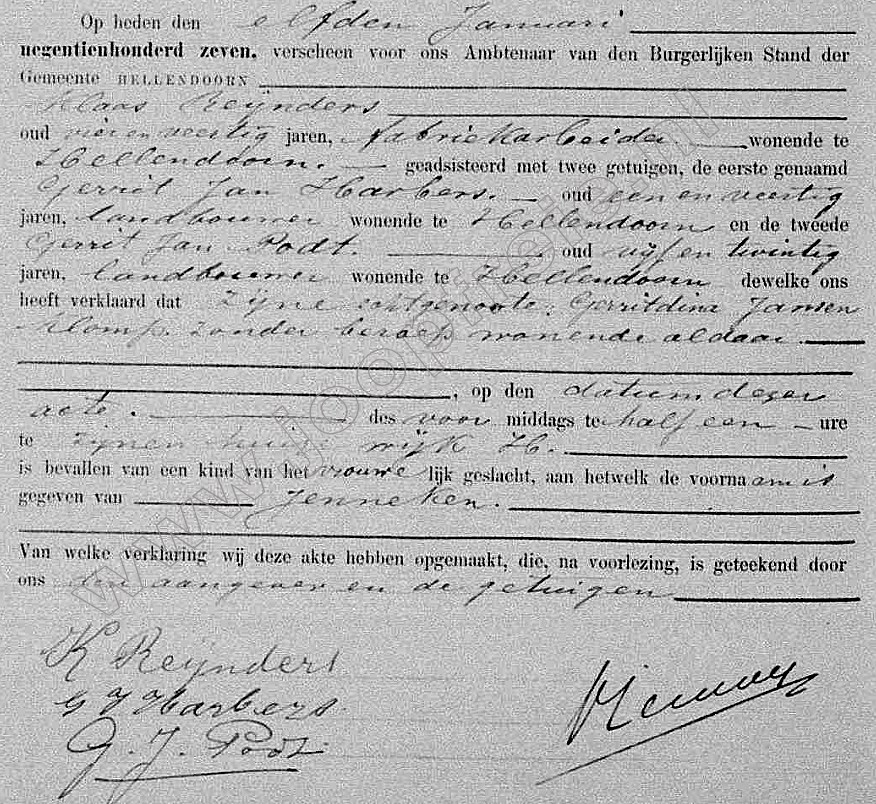 Op heden den elfden Januari
negentienhonderd zeven, verscheen voor ons Ambtenaar van den Burgerlijken Stand der
Gemeente HELLENDOORN
Klaas Reijnders
oud vier en veertig jaren, fabriekarbeider wonende te
Hellendoorn. geadsisteerd met twee getuigen, de eerste genaamd
Gerrit Jan Harbers. oud een en veertig
jaren, landbouwer wonende te Hellendoorn en de tweede
Gerrit Jan Podt. oud vijf en twintig
jaren, landbouwer wonende te Hellendoorn dewelke ons
heeft verklaard dat zijne echtgenoote, Gerritdina Jansen
Klomp. zonder beroep wonende aldaar.
, op den datum dezer
acte. des voor middags te half een ure
te zijnen huize wijk H.
is bevallen van een kind van het vrouwelijk geslacht, aan hetwelk de voornaam is
gegeven van Jenneken.
Van welke verklaring wij deze akte hebben opgemaakt, die, na voorlezing, is geteekend door
ons den aangever en de getuigen
K Reijnders
G J Harbers.
G. J. Podt.